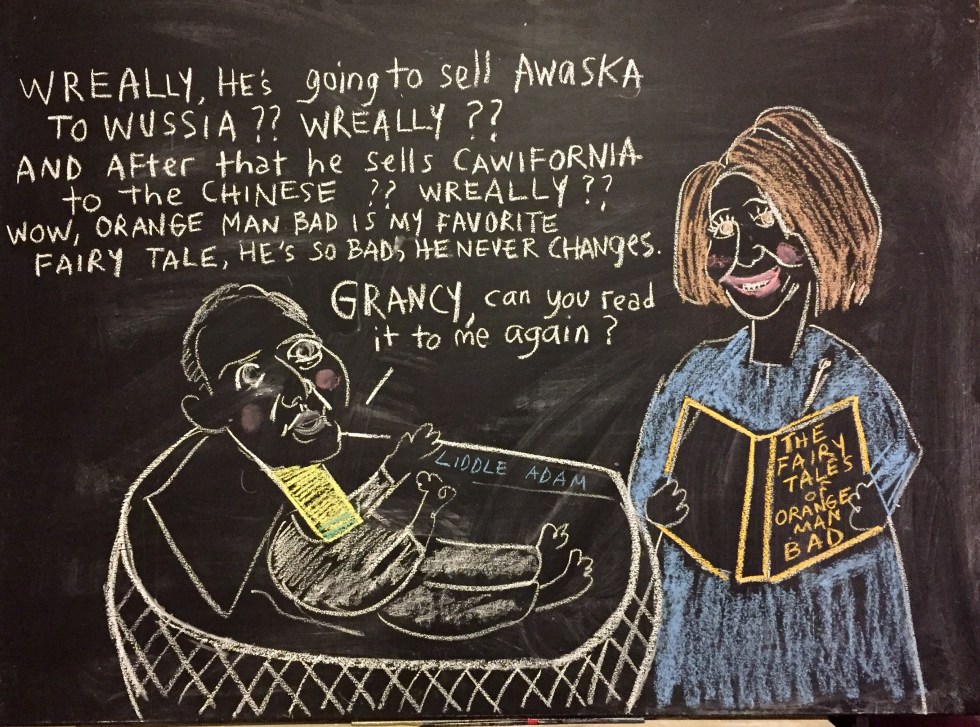 WREALLY, HE's going to sell AWASKA
TO WUSSIA ?? WREALLY ??
AND AFter that he sells CAWIFORNIA
to the CHINESE ?? WREALLY ??
WOW, ORANGE MAN BAD IS MY FAVORITE
FAIRY TALE, HE'S SO BAD, HE NEVER CHANGES.
GRANCY, can you read
it to me again ?
LIDDLE ADAM
THE
FAIRY
TALES
OF
ORANGE
MAN
BAD